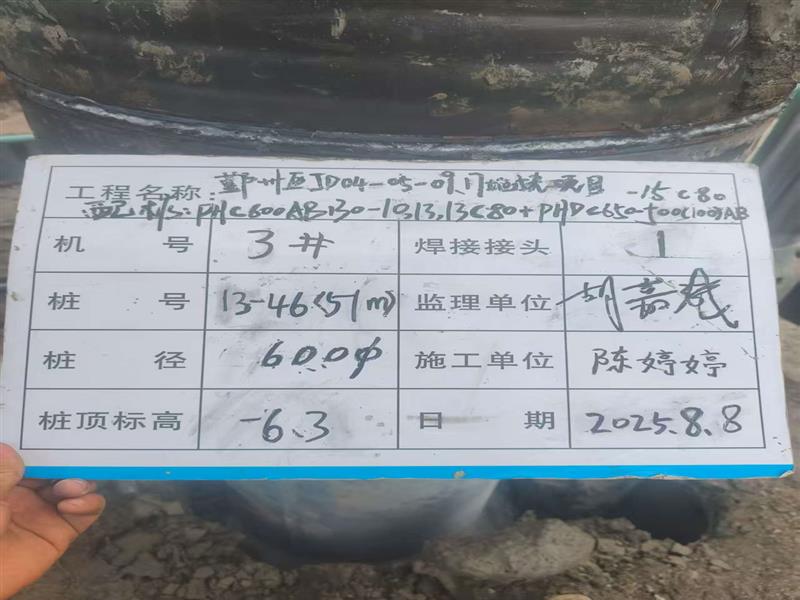 工程名称: 鄞州区JD04-05-09门地块项目
配桩: PHC600AB130-10,13,13C80+PHDC650-500(100)AB -15C80
机 号 3# 焊接接头 1
桩 号 13-46(51m) 监理单位
桩 径 600φ 施工单位 陈婷婷
桩顶标高 -6.3 日 期 2025.8.8